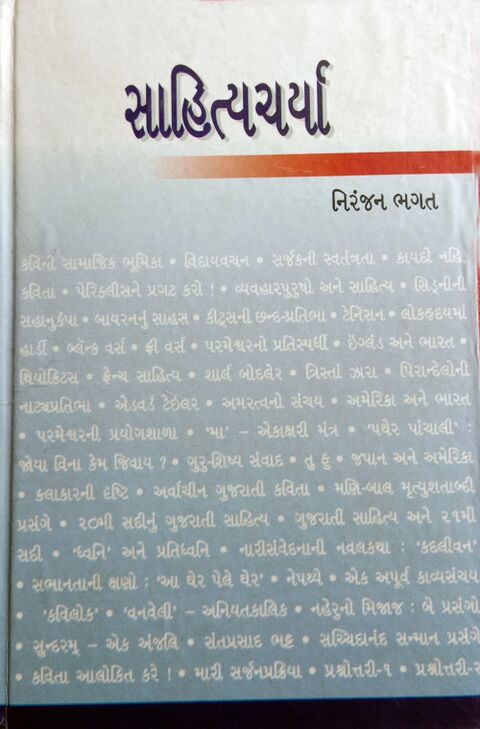 સાહિત્યચર્યા
નિરંજન ભગત
કવિની સામાજિક ભૂમિકા • વિદાયવચન • સર્જકની સ્વતંત્રતા • કાયદો નહિ,
કવિતા • પેરિક્લીસને પ્રગટ કરો ! • વ્યવહારપુરુષો અને સાહિત્ય • સિડ્નીની
સહાનુકંપા • બાયરનનું સાહસ • કીટ્સની છન્દ-પ્રતિભા • ટેનિસન • લોકહૃદયમાં
હાર્ડી • બ્લૅન્ક વર્સ • ફ્રી વર્સ • પરમેશ્વરનો પ્રતિસ્પર્ધી • ઇંગ્લંડ અને ભારત •
થિયોક્રિટસ • ફ્રેન્ચ સાહિત્ય • શાર્લ બોદલેર • ત્રિસ્તાં ઝારા • પિરાન્દેલોની
નાટ્યપ્રતિભા • એડવર્ડ ટેઇલર • અમરત્વનો સંચય • અમેરિકા અને ભારત
• પરમેશ્વરની પ્રયોગશાળા • 'મા' – એકાક્ષરી મંત્ર • 'પથેર પાંચાલી' :
જોયા વિના કેમ જિવાય ? • ગુરુ-શિષ્ય સંવાદ • તુ ફુ • જપાન અને અમેરિકા
• કલાકારની દૃષ્ટિ • અર્વાચીન ગુજરાતી કવિતા • મણિ-બાલ મૃત્યુશતાબ્દી
પ્રસંગે • ૨૦મી સદીનું ગુજરાતી સાહિત્ય • ગુજરાતી સાહિત્ય અને ૨૧મી
સદી • 'ધ્વનિ' અને પ્રતિધ્વનિ • નારીસંવેદનાની નવલકથા : 'કદલીવન'
• સભાનતાની ક્ષણો : 'આ ઘેર પેલે ઘેર' • નેપથ્યે • એક અપૂર્વ કાવ્યસંચય
• 'કવિલોક' • 'વનવેલી' – અનિયતકાલિક • નહેરુનો મિજાજ : બે પ્રસંગો
• સુન્દરમ્ – એક અંજલિ • સંતપ્રસાદ ભટ્ટ • સચ્ચિદાનંદ સન્માન પ્રસંગે
• કવિતા આલોકિત કરે ! • મારી સર્જનપ્રક્રિયા • પ્રશ્નોત્તરી-૧ • પ્રશ્નોત્તરી-૨